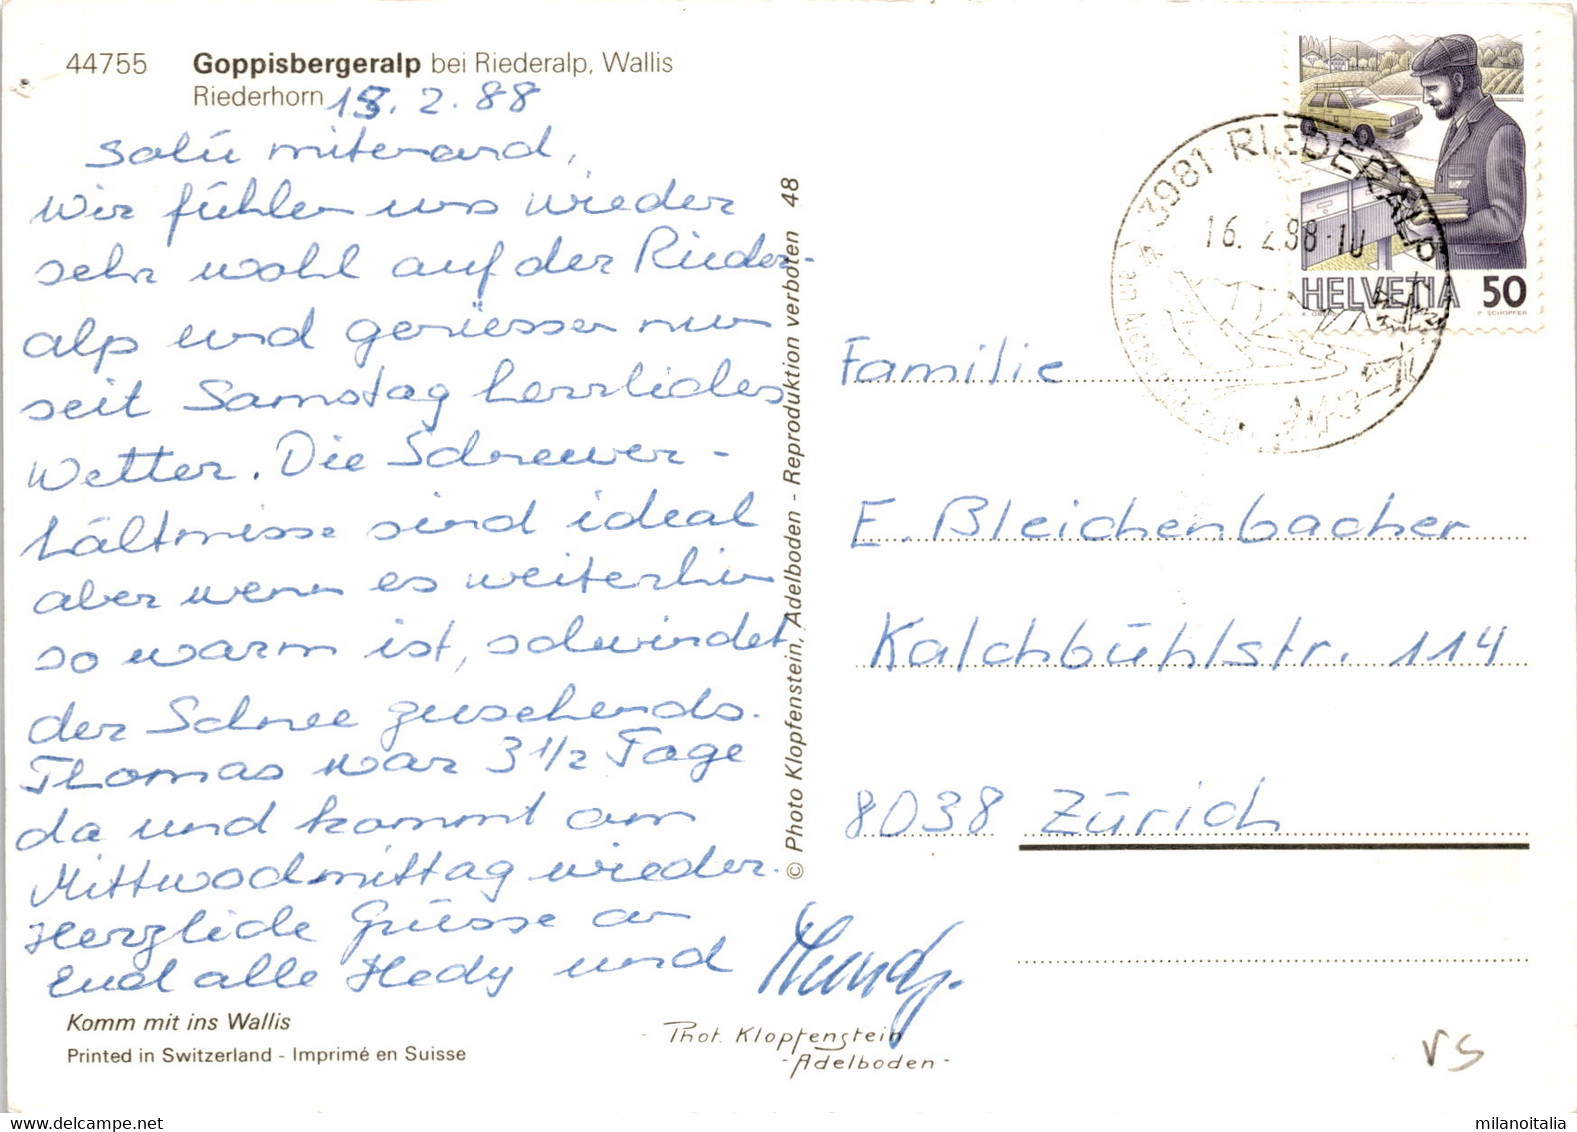 44755 Goppisbergeralp bei Riederalp, Wallis
Riederhorn
15. 2. 88
Salü mitenand,
Wir fühlen uns wieder
sehr wohl auf der Rieder-
alp und geniessen nun
seit Samstag herrliches
Wetter. Die Schneever-
hältnisse sind ideal
aber wenn es weiterhin
so warm ist, schwindet
der Schnee zusehends.
Thomas war 3 1/2 Tage
da und kommt am
Mittwochmittag wieder.
Herzliche Grüsse an
Euch alle Hedy und
Komm mit ins Wallis
Printed in Switzerland - Imprimé en Suisse
© Photo Klopfenstein, Adelboden - Reproduktion verboten 48
- Phot. Klopfenstein
- Adelboden -
3981 RIEDERALP
16. 2. 88 - 10
HELVETIA 50
P. SCHOPFER
Familie
E. Bleichenbacher
Kalchbühlstr. 114
8038 Zürich
VS
milanoitalia